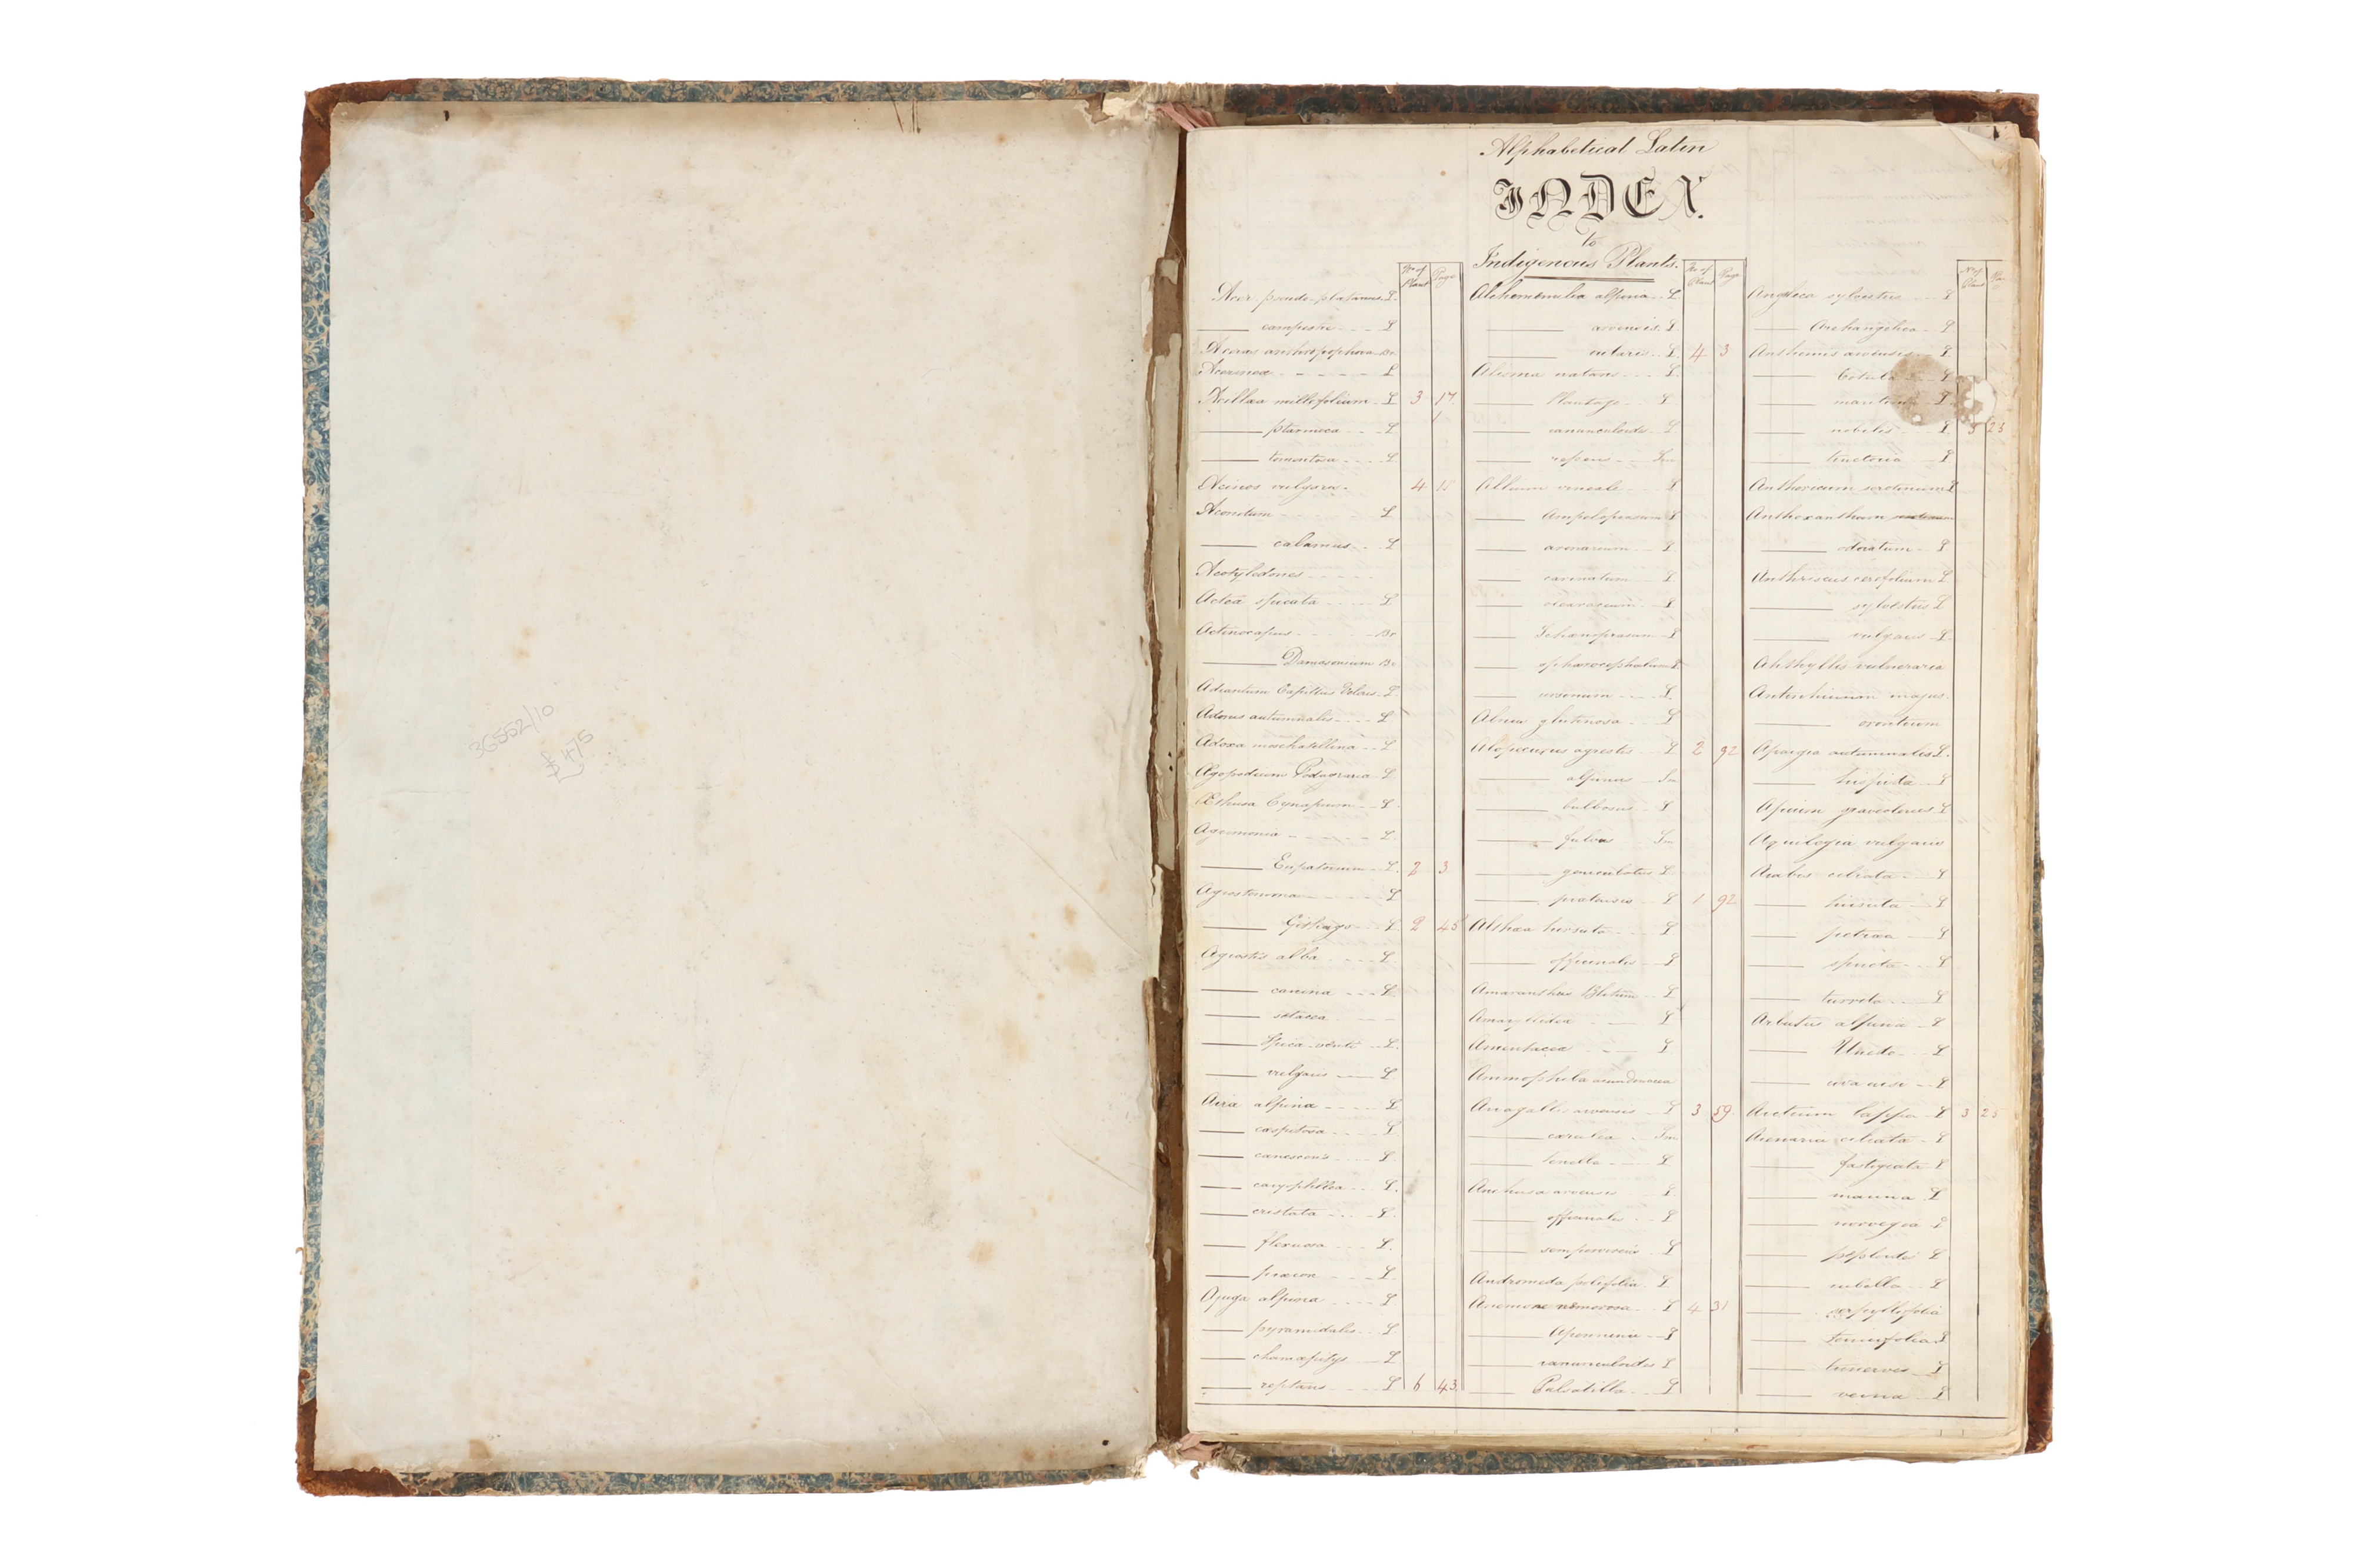 36552/10
£475
Alphabetical Latin
INDEX.
to
Indigenous Plants.
No of Plant Page
Acer pseudo-platanus L.
—— campestre - - - L
Aceras anthropophora Br.
Acerinea - - - - - L
Acillæa millefolium - L 3 17
1
—— ptarmica - - - L
—— tomentosa - - - L
Acinos vulgaris - 4 15
Aconitum L
—— calamus - - L
Acotyledones - - - -
Actea spicata - - - - L
Actinocarpus - - - - Br
—— Damasonium Br
Adiantum Capillus Veloris - L
Adonis autumnalis - - - - L
Adoxa moschatellina - - L
Ægopodium Podagraria - L
Æthusa Cynapium - - L
Agrimonia - - - - - L
—— Eupatorium - - L. 2 3
Agrostemma - - - - - L
—— Githago - - L 2 45
Agrostis alba - - - - L
—— canina - - - L
—— setacea - - -
—— Spica-venti - - L
—— vulgaris —— L
Aira alpina - - - - - L
—— cæspitosa - - - - L
—— canescens - - - - L
—— caryophyllea - - - L.
—— cristata - - - - L
—— flexuosa - - - - L.
—— præcox - - - - L
Ajuga alpina - - - - L
—— pyramidalis - - - L
—— chamæpitys - - L
—— reptans - - - - L 6 43
No of Plant Page
Alchemmilla alpina - - L
—— arvensis. L
—— vulgaris - - L 4 3
Alisma natans - - - L
—— Plantago - - L
—— ranunculoides - L
—— repens - - - Sm
Allium vineale - - - L
—— Ampeloprasum L
—— arenarium - - L
—— carinatum - - L
—— oleraceum - - L
—— Schœnoprasum - L
—— sphærocephalum L
—— ursinum - - - L
Alnus glutinosa - - L
Alopecurus agrestis - - L 2 92
—— alpinus - - Sm
—— bulbosus - - L
—— fulvus - - Sm
—— geniculatus L.
—— pratensis - - L 1 92
Althæa hirsuta - - - - L
—— officinalis - - L
Amaranthus Blitum - - L
Amaryllidea - —— L
Amentacea - —— L
Ammophila arundinacea
Anagallis arvensis - - L 3 59
—— cærulea - - Sm
—— tenella - - - L
Anchusa arvensis - - L
—— officinalis - - L
—— sempervirens - L
Andromeda polifolia - L
Anemone nemorosa - - L 4 31
—— Apennena - - L
—— ranunculoides L
—— Pulsatilla - - L
No of Plant
Angelica sylvestris - - - L
—— Archangelica - - L
Anthemis arvensis - - L
—— Cotula - - L
—— maritima - L
—— nobilis - - - L 5 23
—— tinctoria - - L
Anthericum serotinum L
Anthoxanthum
—— odoratum - - L
Anthriscus cerefolium L
—— sylvestris L
—— vulgaris - L
Anthyllis vulneraria
Antirrhinum majus.
—— orontium
Apargia autumnalis L.
—— hispida - - L
Apium graveolens L
Aquilegia vulgaris
Arabis ciliata - - L
—— hirsuta - - L
—— petræa - - L
—— stricta - - L
—— turrita - - - L
Arbutus alpina - L
—— Unedo - - L
—— uva ursi - - L
Arctium Lappa - L 3 25
Arenaria ciliata - L
—— fastigiata L
—— marina L
—— norvegica L
—— peploides L
—— rubella - - L
—— serpyllifolia
—— tenuifolia L
—— trinervis - - L
—— verna - - L